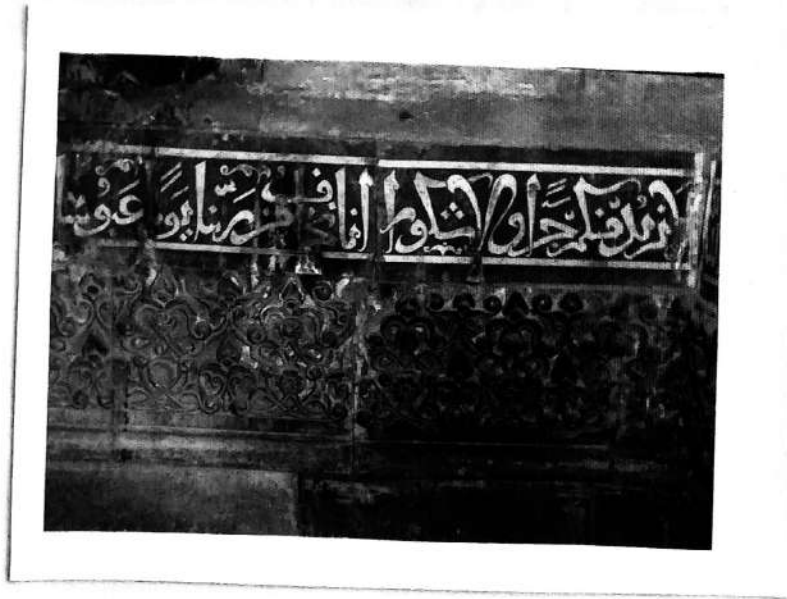 لا نريد منكم جزاء ولا شكورا انا نخاف من ربنا يوما عبوسا